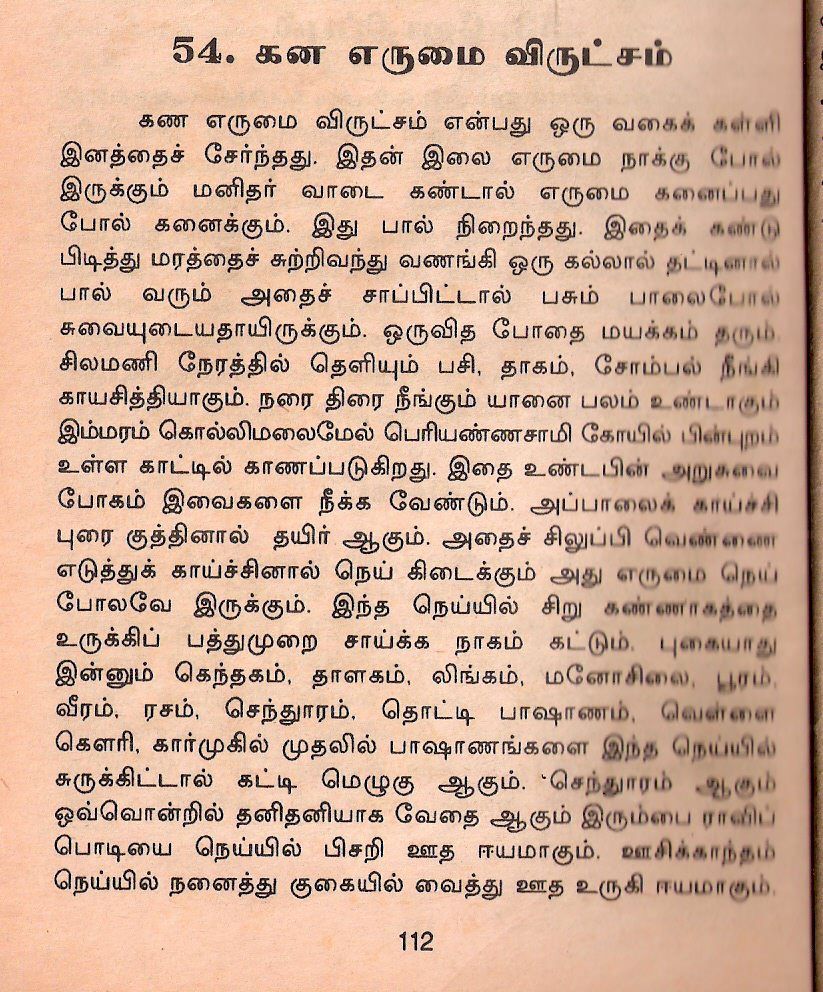 54. கன எருமை விருட்சம்
கண எருமை விருட்சம் என்பது ஒரு வகைக் கள்ளி
இனத்தைச் சேர்ந்தது. இதன் இலை எருமை நாக்கு போல்
இருக்கும் மனிதர் வாடை கண்டால் எருமை கனைப்பது
போல் கனைக்கும். இது பால் நிறைந்தது. இதைக் கண்டு
பிடித்து மரத்தைச் சுற்றிவந்து வணங்கி ஒரு கல்லால் தட்டினால்
பால் வரும் அதைச் சாப்பிட்டால் பசும் பாலைபோல
சுவையுடையதாயிருக்கும். ஒருவித போதை மயக்கம் தரும்.
சிலமணி நேரத்தில் தெளியும் பசி, தாகம், சோம்பல் நீங்கி
காயசித்தியாகும். நரை திரை நீங்கும் யானை பலம் உண்டாகும்
இம்மரம் கொல்லிமலைமேல் பெரியண்ணசாமி கோயில் பின்புறம்
உள்ள காட்டில் காணப்படுகிறது. இதை உண்டபின் அறுசுவை
போகம் இவைகளை நீக்க வேண்டும். அப்பாலைக் காய்ச்சி
புரை குத்தினால் தயிர் ஆகும். அதைச் சிலுப்பி வெண்ணை
எடுத்துக் காய்ச்சினால் நெய் கிடைக்கும் அது எருமை நெய்
போலவே இருக்கும். இந்த நெய்யில் சிறு கண்ணாகத்தை
உருக்கிப் பத்துமுறை சாய்க்க நாகம் கட்டும். புகையாது
இன்னும் கெந்தகம், தாளகம், லிங்கம், மனோசிலை, பூரம்,
வீரம், ரசம், செந்தூரம், தொட்டி பாஷாணம், வெள்ளை
கௌரி, கார்முகில் முதலில் பாஷாணங்களை இந்த நெய்யில்
சுருக்கிட்டால் கட்டி மெழுகு ஆகும். செந்தூரம் ஆகும்
ஒவ்வொன்றில் தனிதனியாக வேதை ஆகும் இரும்பை ராவிப்
பொடியை நெய்யில் பிசறி ஊத ஈயமாகும். ஊசிக்காந்தம்
நெய்யில் நனைத்து குகையில் வைத்து ஊத உருகி ஈயமாகும்.
112